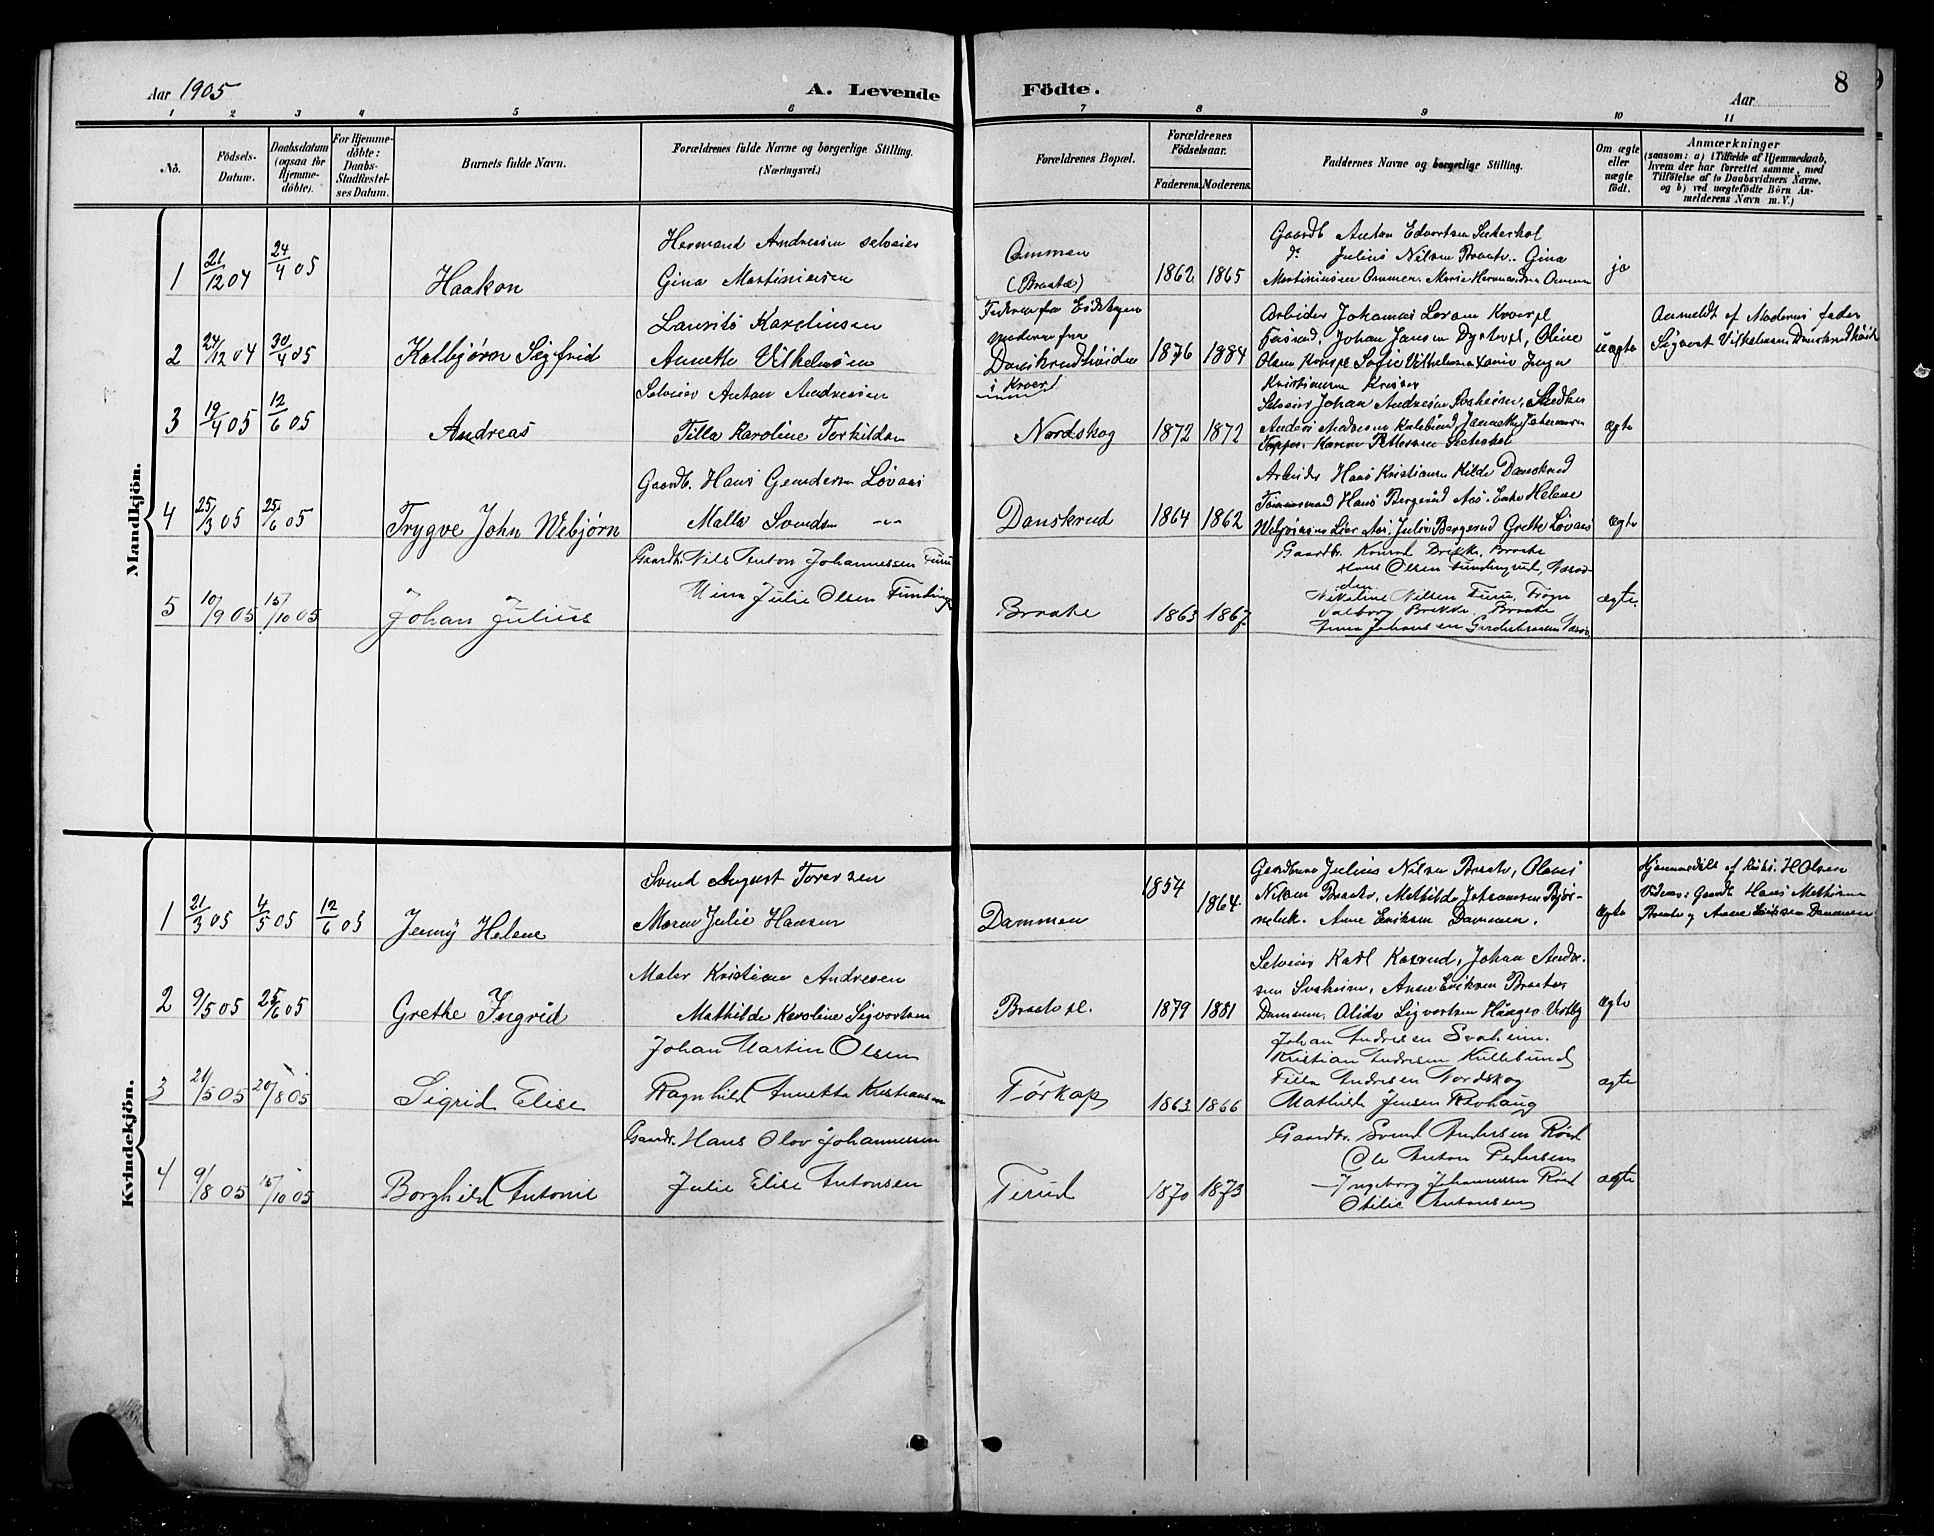 Aar 1905
A. Levende Födte.
Aar
8
1 2 3 4 5 6 7 8 9 10 11
No.
Födsels-Datum.
Daabsdatum (ogsaa for Hjemme-döbte).
For Hjemme-döbte: Daabs-Stadfæstel-ses Datum.
Barnets fulde Navn.
Forældrenes fulde Navne og borgerlige Stilling. (Næringsvei.)
Forældrenes Bopæl.
Forældrenes Födselsaar.
Faderens. Moderens.
Faddernes Navne og borgerlige Stilling.
Om ægte eller uægte födt.
Anmærkninger
(saasom: a) i Tilfælde af Hjemmedaab, hvem der har forrettet samme, med Tilföielse af to Daabsvidners Navne, og b) ved uægtefödte Börn An-melderens Navn m. V.)
Mandkjön.
1 21/12 04 24/4 05 Haakon
Hermand Andresen selveier
Gina Martinissen
Ommen
(Braate)
1862 1865
Gaardb Anton Edvartsen Sæterhol
do Julius Nilsen Braate. Gina
Martinissen Ommen Marie Hermansdtr Ommen
ja
2 24/12 04 30/4 05 Kolbjørn Sigfrid
Laurits Karelinsen
Annette Vilhelmsen
Faderen fra Eidskogen
moderen fra
Danskrudhøiden
i Kroer
1876 1884
Arbeider Johannes Løvaas Kroerpl
Johan Jansen Dystvpl, Oline
Olsen Kroerpl Sofie Vilhelmsen Inga
Kristiansen Kroer
uægte
Anmeldt af Moderens fader
Sigvart Vilhelmsen Danskrudhøid
3 19/4 05 12/6 05 Andreas
Selveier Anton Andresen
Tilla Karoline Torkildsen
Nordskog
1872 1872
Selveier Johan Andresen Svaheim, Snedker
Anders Andresen Kullebund,
Karen Pettersen Sæterhol
ægte
4 25/3 05 25/6 05 Trygve John Webjørn
Gaardb. Hans Gundersen Løvaas
Malla Svendsen -"-
Danskrud
1864 1862
Arbeider Hans Kristiansen Kilde Danskrud
Tømmermand Hans Bergerud Aas. Enke Helene
Webjørnsen Lier Aas, Julie Bergerud Grethe Løvaas
ægte
5 10/9 05 15/10 05 Johan Julius
Gaardb. Nils Anton Johannessen Furu
Mina Julie Olsen
Braate
1863 1867
Gaardbr. Konrad Brekke, Braate
Hans Olsen Fundingrud,
Nikoline Nilsen Furu, Frogn
Valborg Brekke, Braate
Anna Johansen
ægte.
Kvindekjön.
1 21/3 05 4/5 05 12/6 05 Jenny Helene
Svend August Toresen
Maren Julie Hansen
Dammen
1854 1864
Gaardbruger Julius Nilsen Braate, Olaus
Nilsen Braate, Mathilde Johansen Bjør-
nebek. Anne Eriksen Dammen.
ægte
Hjemmedøbt af H Olsen
Vidner: Gaardb Hans Mathisen
Braate og Anne Eriksen Dammen
2 9/5 05 25/6 05 Grethe Ingrid
Maler Kristian Andresen
Mathilde Karoline Sigvartsen
Braate pl.
1879 1881
Selveier Karl Kaxrud, Johan Andre-
sen Svaheim, Anne Eriksen Braate,
Dammen, Alida Sigvartsen Haager Vestby
ægte
3 21/5 05 20/8 05 Sigrid Elise
Johan Martin Olsen
Ragnhild Annette Kristiansen
Tørkop
1863 1866
Johan Andresen Svaheim.
Kristian Andresen Kullebund
Tilla Andresen Nordskog
Mathilde Jensen Revhaug
ægte
4 9/8 05 15/10 05 Borghild Antonie
Gaardbr. Hans Olov Johannessen
Julie Elise Antonsen
Tirud
1870 1873
Gaardbr. Svend Andersen Röed
Ole Anton Pedersen
Ingeborg Johannessen Röed
Otilie Antonsen
ægte